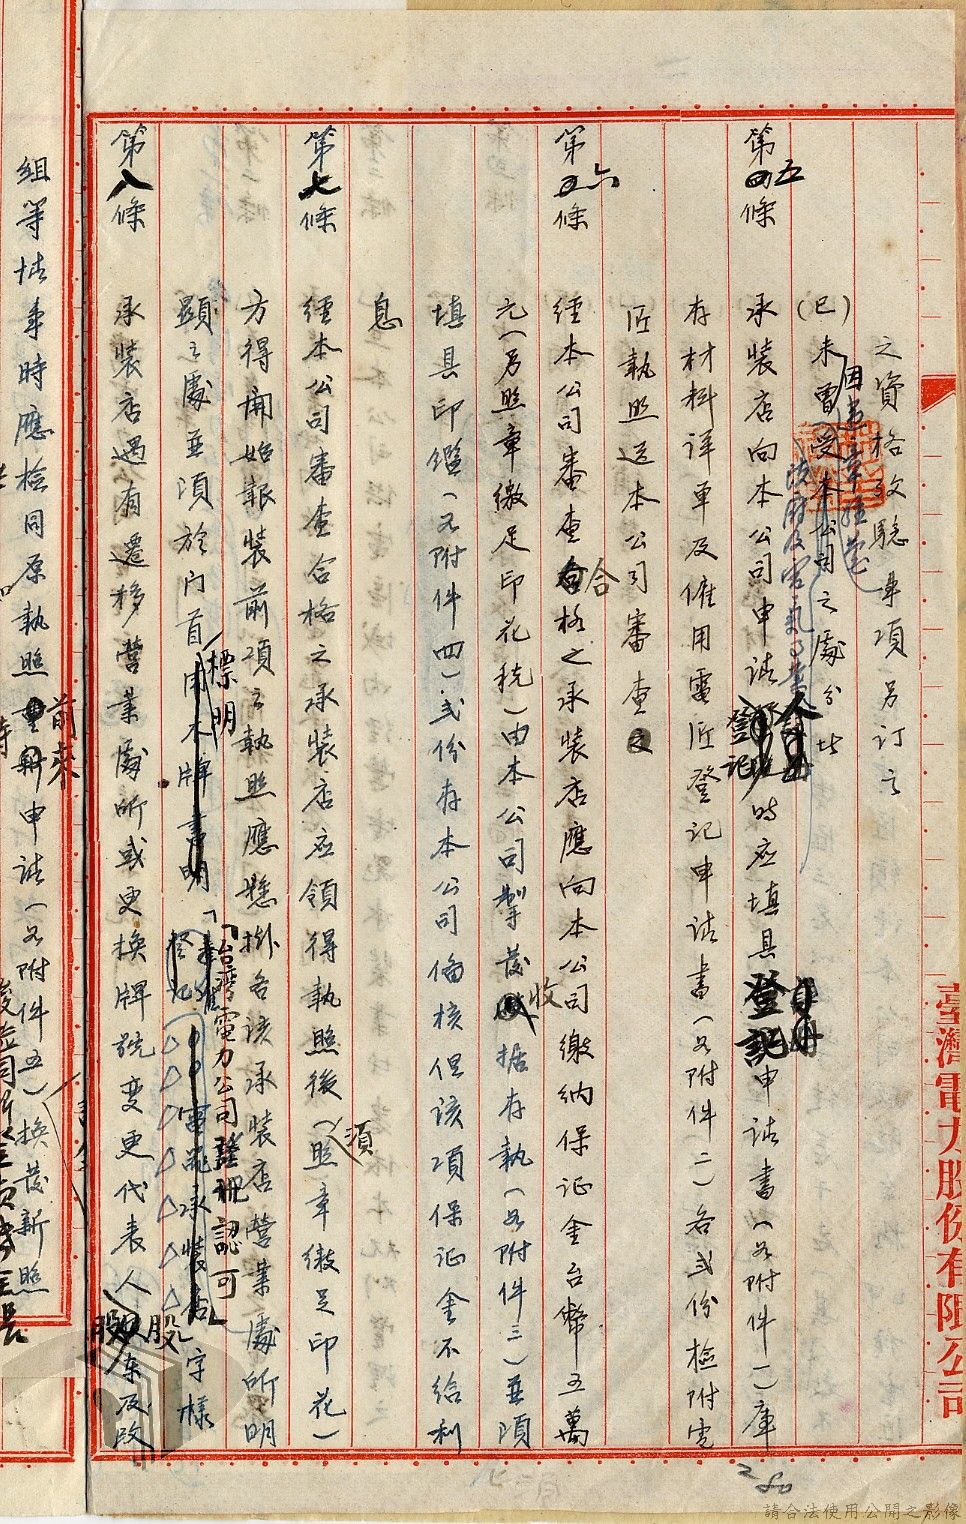 之資格攷驗事項另訂之
(巳)未曾因違章經受本公司之處分者
政府及電氣事業人
第五條 承裝店向本公司申請登記時应填具登記申請書(如附件一)庫
存材料詳單及僱用電匠登記申請書(如附件二)各弍份檢附電
匠執照送本公司審查
第六條 經本公司審查合格之承裝店應向本公司繳納保证金台幣五萬
元(另照章繳足印花稅)由本公司掣發收据存執(如附件三)並須
填具印鑑(如附件四)弍份存本公司備核但該項保证金不給利
息
第七條 經本公司審查合格之承裝店应領得執照後(須照章繳足印花)
方得開始報裝前項之執照應懸掛各該承裝店營業處所明
顯之處並須於門首標明「台灣電力公司認可△△△△△電器承裝店」字樣
第八條 承裝店遇有遷移營業處所或更換牌號变更代表人股東及改
組等情事時應檢同原執照前來申請(如附件五)換發新照
臺灣電力股份有限公司
請合法使用公開之影像